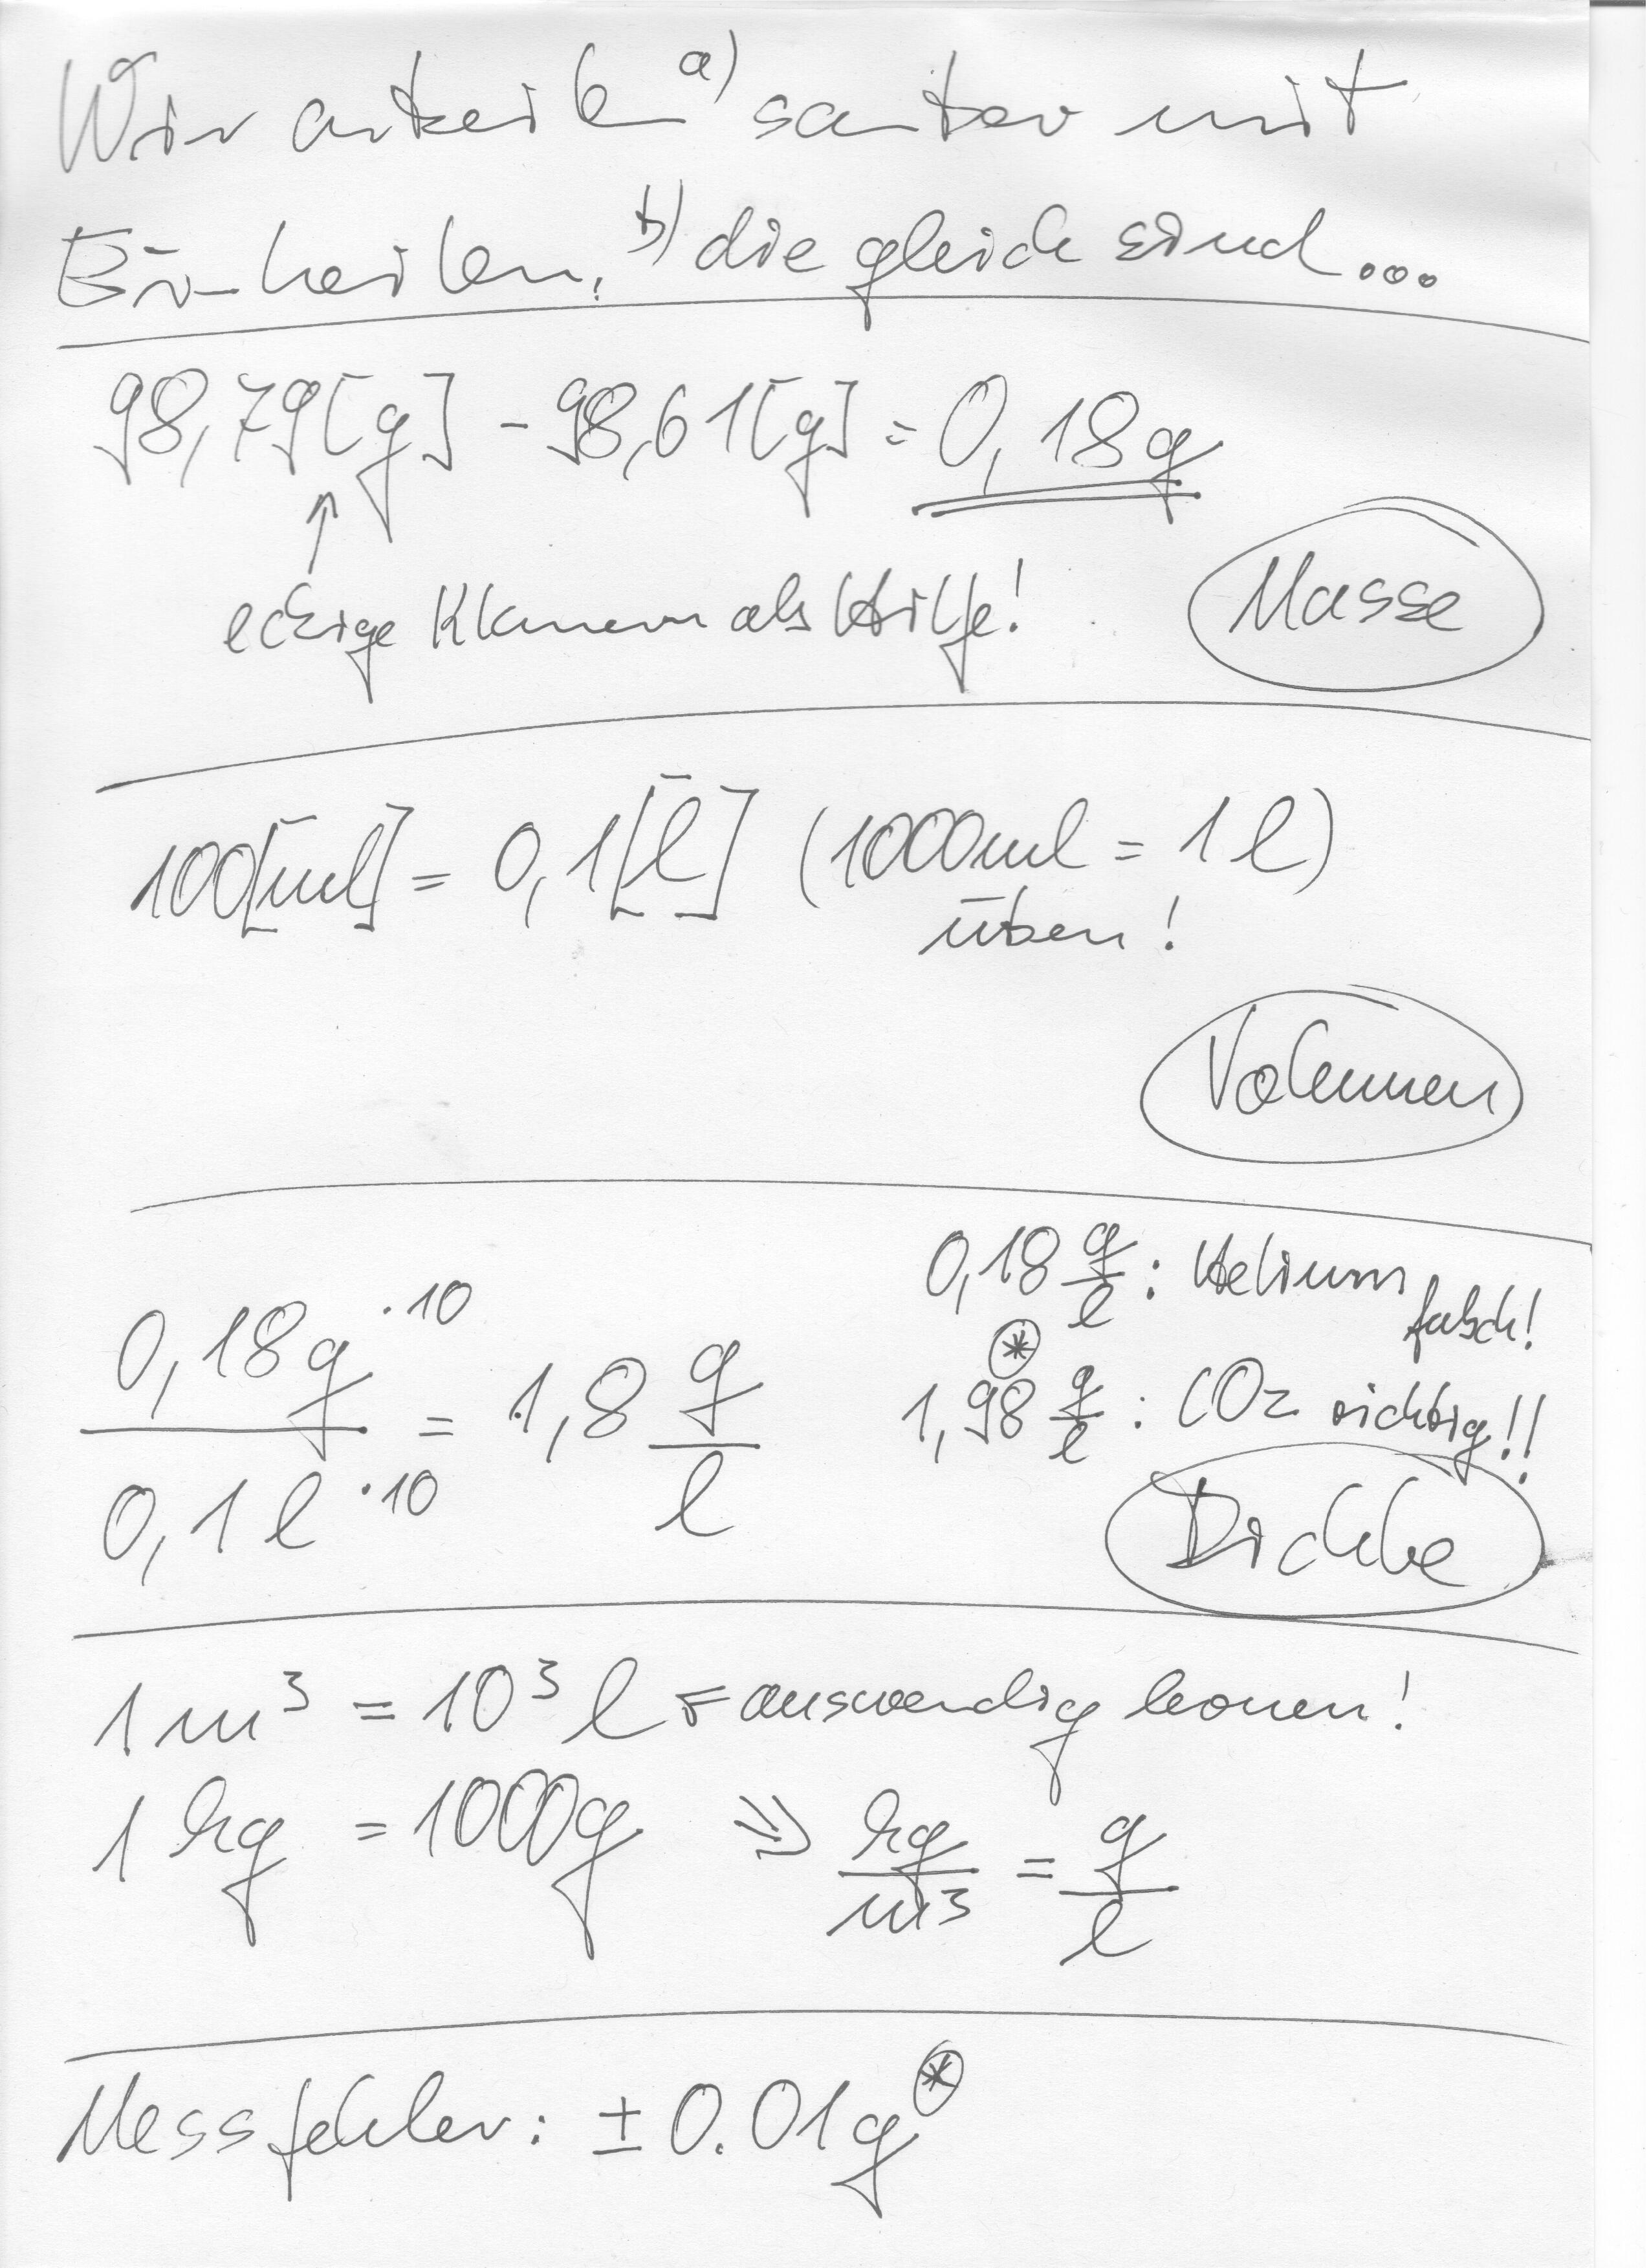 Wir arbeiten a) sauber mit
Einheiten, b) die gleich sind...
98,79[g] - 98,61[g] = 0,18g
↑
eckige Klammern als Hilfe!
Masse
100[ml] = 0,1[l] (1000ml = 1l)
üben!
Volumen
0,18 g/l : Helium falsch!
0,18g ·10 / 0,1l ·10 = 1,8 g/l
* 1,98 g/l : CO2 richtig!!
Dichte
1m³ = 10³ l ⇐ auswendig lernen!
1 kg = 1000g ⇒ kg/m³ = g/l
Messfehler: ± 0.01g *